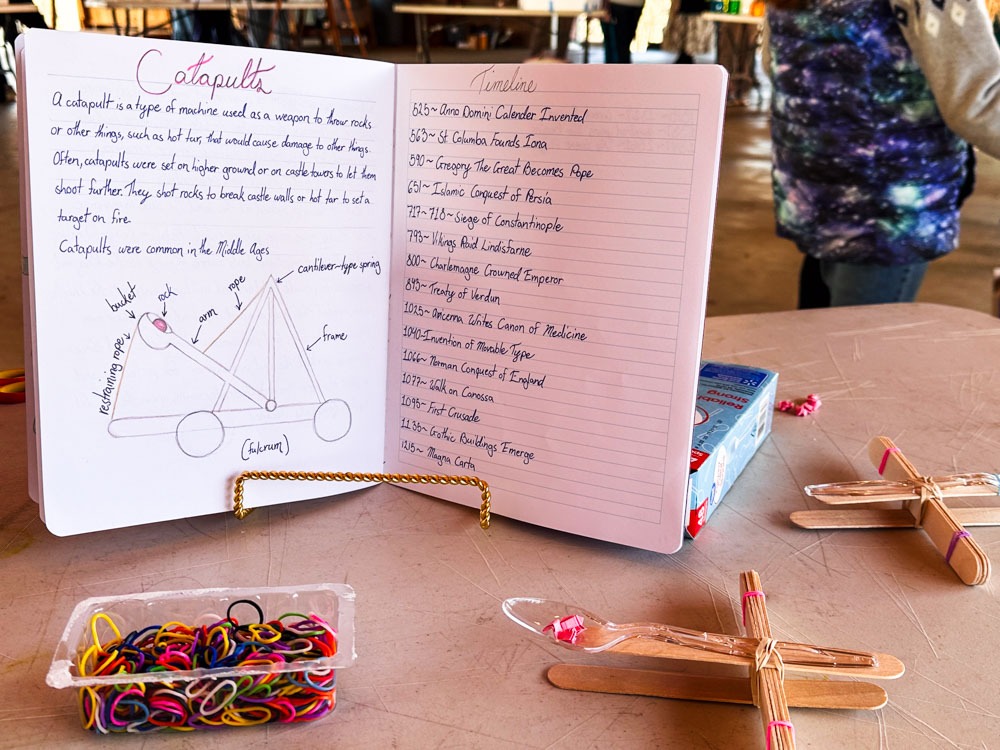 Catapults
A catapult is a type of machine used as a weapon to throw rocks
or other things, such as hot tar, that would cause damage to other things.
Often, catapults were set on higher ground or on castle towers to let them
shoot further. They shot rocks to break castle walls or hot tar to set a
target on fire.
Catapults were common in the Middle Ages
cantilever-type spring
rope
rock
bucket
arm
frame
restraining rope
(fulcrum)
Timeline
525~ Anno Domini Calender Invented
563~ St Columba Founds Iona
590~ Gregory The Great Becomes Pope
651~ Islamic Conquest of Persia
717-718~ Siege of Constantinople
793~ Vikings Raid Lindisfarne
800~ Charlemagne Crowned Emperor
843~ Treaty of Verdun
1025~ Avicenna Writes Canon of Medicine
1040-Invention of Movable Type
1066~ Norman Conquest of England
1077~ Walk on Canossa
1095~ First Crusade
1135~ Gothic Buildings Emerge
1215~ Magna Carta
Strong